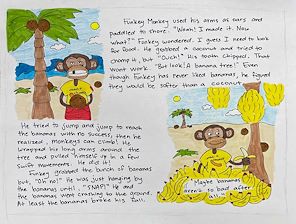 Funkey Monkey used his arms as oars and
paddled to shore. "Whew! I made it. Now
what?" Funkey wondered. I guess I need to look
for food. He grabbed a coconut and tried to
chomp it, but "Ouch!" His tooth chipped. That
wont work. "But look! A banana tree!" Even
though Funkey has never liked bananas, he figured
they would be softer than a coconut.
He tried to jump and jump to reach
the bananas with no success, then he
realized, monkeys can climb! He
wrapped his long arms around the
tree and pulled himself up in a few
swift movements. He did it!
Funkey grabbed the bunch of bananas
but, "Oh no!" He was just hanging by
the bananas until, "SNAP!" He and
the bananas went crashing to the ground.
At least the bananas broke his fall.
Maybe bananas
aren't so bad after
all...